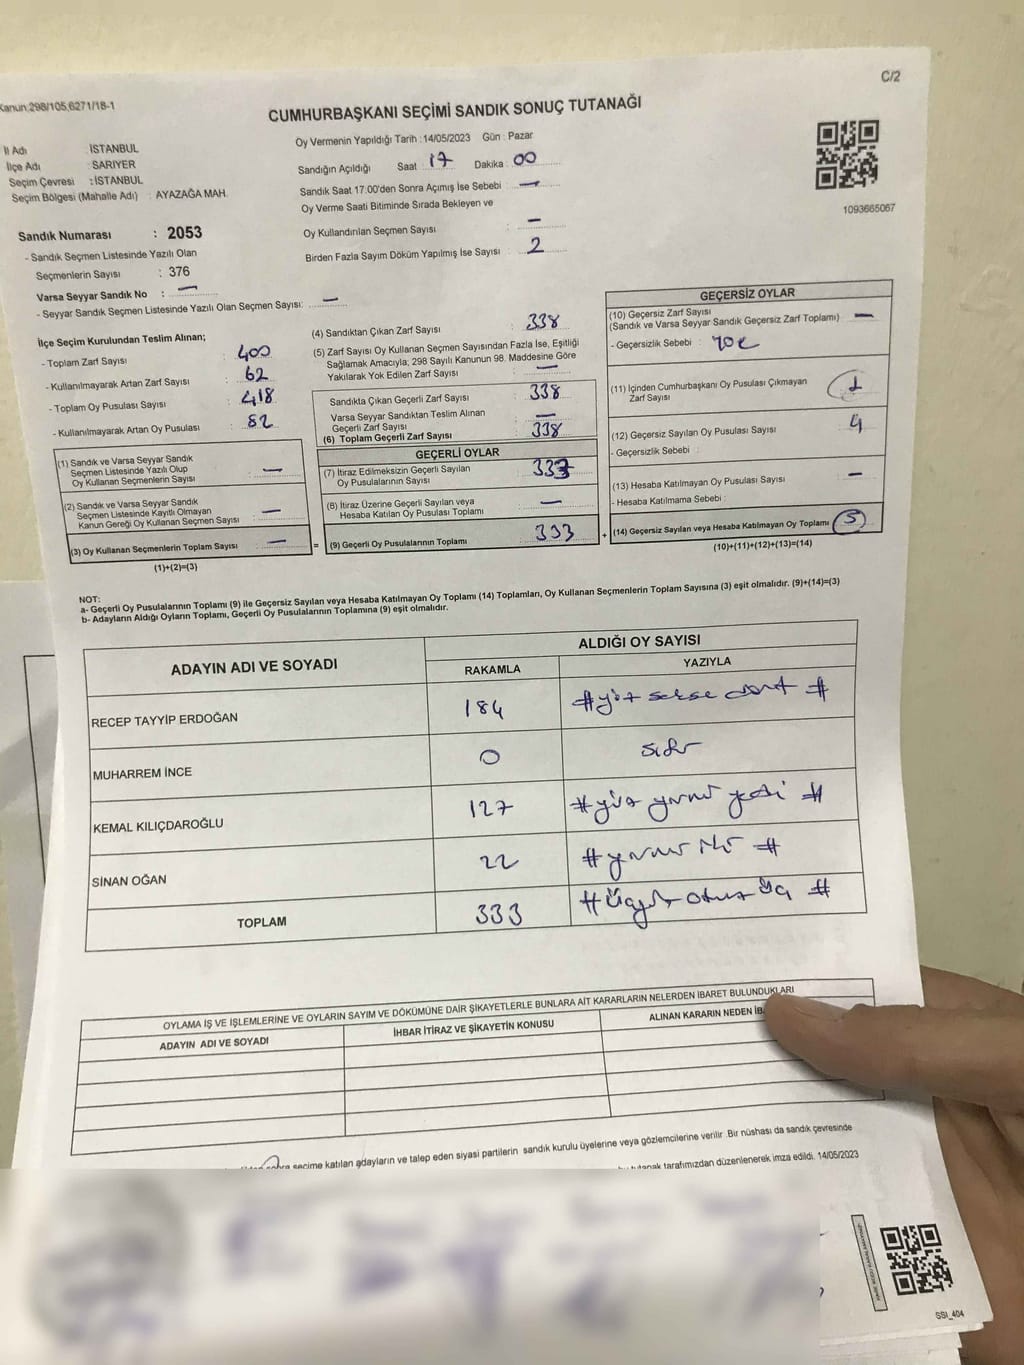 C/2
Kanun:298/105,6271/18-1
CUMHURBAŞKANI SEÇİMİ SANDIK SONUÇ TUTANAĞI
İl Adı : İSTANBUL
İlçe Adı : SARIYER
Seçim Çevresi : İSTANBUL
Seçim Bölgesi (Mahalle Adı) : AYAZAĞA MAH.
Oy Vermenin Yapıldığı Tarih : 14/05/2023 Gün : Pazar
Sandığın Açıldığı Saat : 17 Dakika : 00
Sandık Saat 17:00'den Sonra Açımış İse Sebebi : —
Oy Verme Saati Bitiminde Sırada Bekleyen ve
Oy Kullandırılan Seçmen Sayısı : —
Birden Fazla Sayım Döküm Yapılmış İse Sayısı : 2
1093665067
Sandık Numarası : 2053
- Sandık Seçmen Listesinde Yazılı Olan
Seçmenlerin Sayısı : 376
Varsa Seyyar Sandık No : —
- Seyyar Sandık Seçmen Listesinde Yazılı Olan Seçmen Sayısı: —
İlçe Seçim Kurulundan Teslim Alınan;
- Toplam Zarf Sayısı : 400
- Kullanılmayarak Artan Zarf Sayısı : 62
- Toplam Oy Pusulası Sayısı : 418
- Kullanılmayarak Artan Oy Pusulası : 82
(1) Sandık ve Varsa Seyyar Sandık
Seçmen Listesinde Yazılı Olup
Oy Kullanan Seçmenlerin Sayısı : —
(2) Sandık ve Varsa Seyyar Sandık
Seçmen Listesinde Kayıtlı Olmayan
Kanun Gereği Oy Kullanan Seçmen Sayısı : —
(3) Oy Kullanan Seçmenlerin Toplam Sayısı : —
(1)+(2)=(3)
(4) Sandıktan Çıkan Zarf Sayısı : 338
(5) Zarf Sayısı Oy Kullanan Seçmen Sayısından Fazla İse, Eşitliği
Sağlamak Amacıyla, 298 Sayılı Kanunun 98. Maddesine Göre
Yakılarak Yok Edilen Zarf Sayısı : —
Sandıkta Çıkan Geçerli Zarf Sayısı : 338
Varsa Seyyar Sandıktan Teslim Alınan
Geçerli Zarf Sayısı : —
(6) Toplam Geçerli Zarf Sayısı : 338
GEÇERLİ OYLAR
(7) İtiraz Edilmeksizin Geçerli Sayılan
Oy Pusulalarının Sayısı : 333
(8) İtiraz Üzerine Geçerli Sayılan veya
Hesaba Katılan Oy Pusulası Toplamı : —
= (9) Geçerli Oy Pusulalarının Toplamı : 333
GEÇERSİZ OYLAR
(10) Geçersiz Zarf Sayısı
(Sandık ve Varsa Seyyar Sandık Geçersiz Zarf Toplamı) : —
- Geçersizlik Sebebi : yok
(11) İçinden Cumhurbaşkanı Oy Pusulası Çıkmayan
Zarf Sayısı : 1
(12) Geçersiz Sayılan Oy Pusulası Sayısı : 4
- Geçersizlik Sebebi :
(13) Hesaba Katılmayan Oy Pusulası Sayısı : —
- Hesaba Katılmama Sebebi :
+ (14) Geçersiz Sayılan veya Hesaba Katılmayan Oy Toplamı : 5
(10)+(11)+(12)+(13)=(14)
NOT:
a- Geçerli Oy Pusulalarının Toplamı (9) ile Geçersiz Sayılan veya Hesaba Katılmayan Oy Toplamı (14) Toplamları, Oy Kullanan Seçmenlerin Toplam Sayısına (3) eşit olmalıdır. (9)+(14)=(3)
b- Adayların Aldığı Oyların Toplamı, Geçerli Oy Pusulalarının Toplamına (9) eşit olmalıdır.
ADAYIN ADI VE SOYADI
ALDIĞI OY SAYISI
RAKAMLA YAZIYLA
RECEP TAYYİP ERDOĞAN 184 #yüz seksen dört #
MUHARREM İNCE 0 sıfır
KEMAL KILIÇDAROĞLU 127 #yüz yirmi yedi #
SİNAN OĞAN 22 #yirmi iki #
TOPLAM 333 #Üçyüz otuz üç #
OYLAMA İŞ VE İŞLEMLERİNE VE OYLARIN SAYIM VE DÖKÜMÜNE DAİR ŞİKAYETLERLE BUNLARA AİT KARARLARIN NELERDEN İBARET BULUNDUKLARI
ADAYIN ADI VE SOYADI İHBAR İTİRAZ VE ŞİKAYETİN KONUSU ALINAN KARARIN NEDEN
seçime katılan adayların ve talep eden siyasi partilerin sandık kurulu üyelerine veya gözlemcilerine verilir. Bir nüshası da sandık çevresinde
tutanak tarafımızdan düzenlenerek imza edildi. 14/05/2023
SSI_404